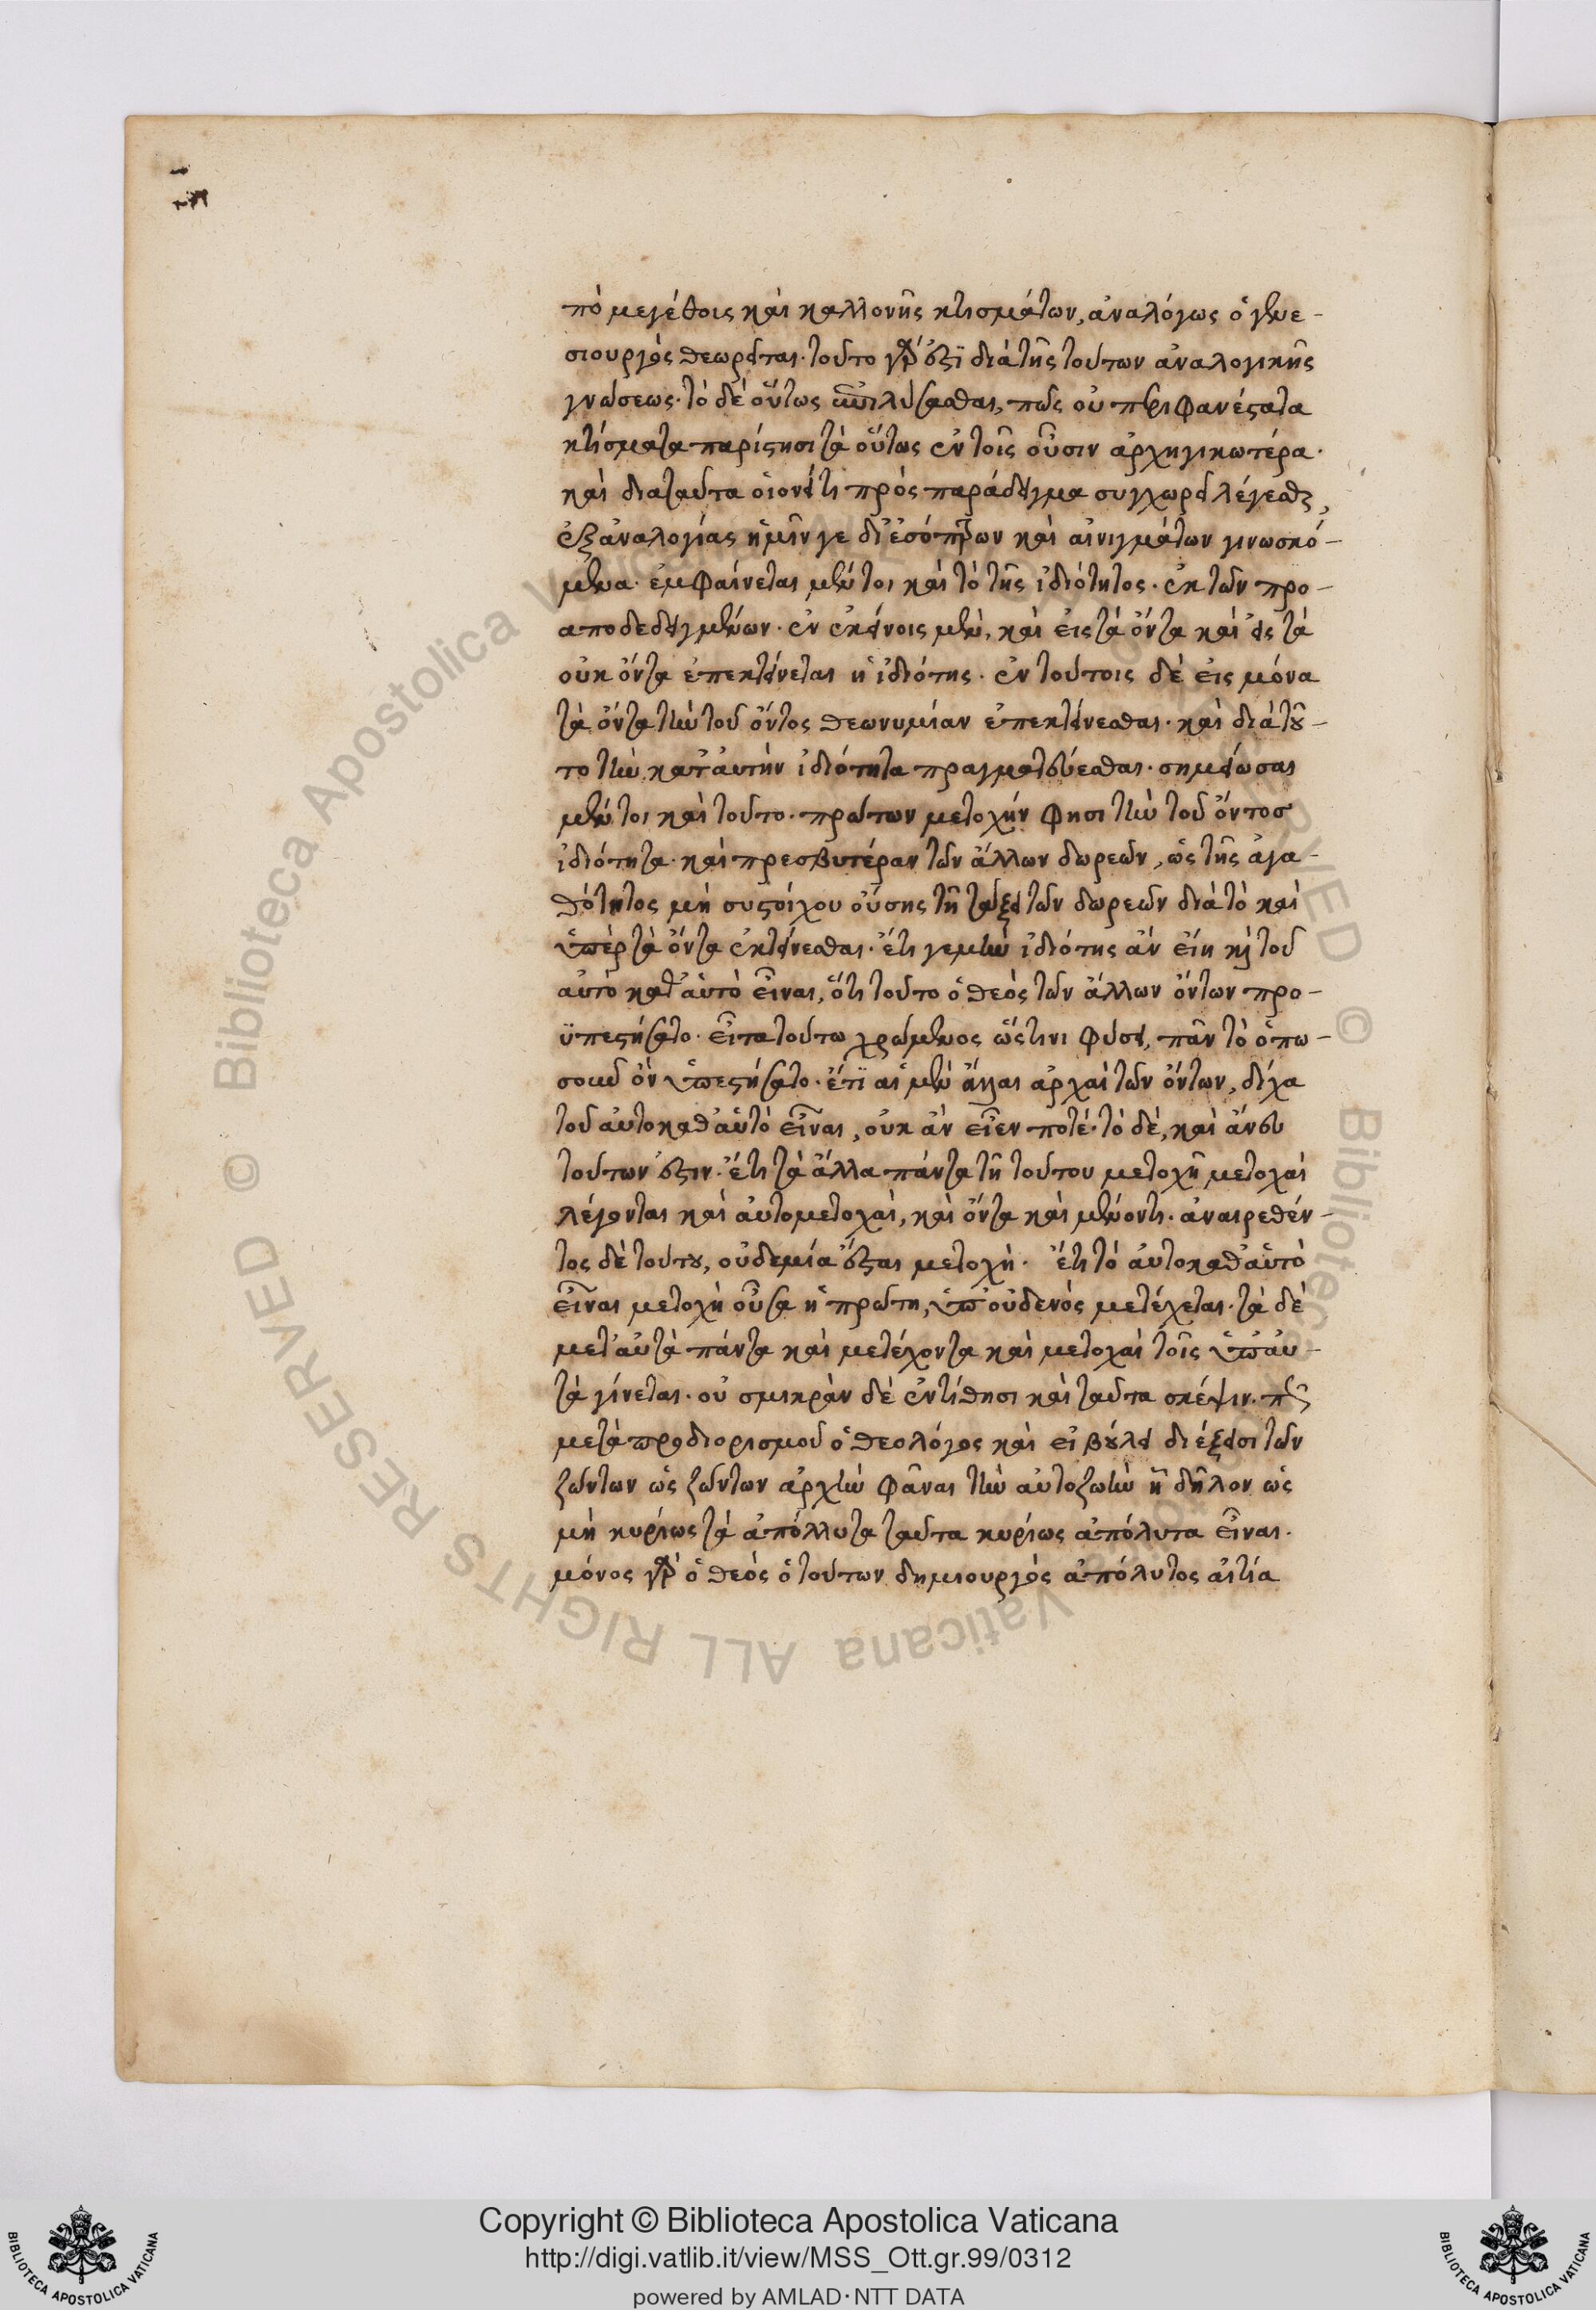 πὸ μεγέθοις καὶ καλλονῆς κτισμάτων, ἀναλόγως ὁ γενε-
σιουργὸς θεωρεῖται. τοῦτο γάρ ἐστὶ διὰ τῆς τούτων ἀναλογικῆς
γνώσεως. τὸ δὲ οὕτως πῶς οὐ περιφανέστατα
κτίσματα παρίστησι τὰ οὕτως ἐν τοῖς οὖσιν ἀρχηγικωτέρα.
καὶ διαταῦτα οἱονεί τι πρὸς παράδειγμα συγχωρεῖ λέγεσθαι,
ἐξ ἀναλογίας ἡμῖν γε δι' ἐσόπτρων καὶ αἰνιγμάτων γινωσκό-
μενα. ἐμφαίνεται μέντοι καὶ τὸ τῆς ἰδιότητος. ἐκ τῶν προ-
αποδεδειγμένων. ἐν ἐκείνοις μὲν, καὶ εἰς τὰ ὄντα καὶ εἰς τὰ
οὐκ ὄντα ἐπεκτείνεται ἡ ἰδιότης. ἐν τούτοις δὲ εἰς μόνα
τὰ ὄντα τὴν τοῦ ὄντος θεωνυμίαν ἐπεκτείνεσθαι. καὶ διὰ τοῦ-
το τὴν κατ' αὐτὴν ἰδιότητα πραγματεύεσθαι. σημείωσαι
μέντοι καὶ τοῦτο. πρώτων μετοχήν φησι τὴν τοῦ ὄντος
ἰδιότητα. καὶ πρεσβυτέραν τῶν ἄλλων δωρεῶν, ὡς τῆς ἀγα-
θότητος μὴ συστοίχου οὔσης τῇ τάξει τῶν δωρεῶν διὰ τὸ καὶ
ὑπὲρ τὰ ὄντα ἐκτείνεσθαι. ἔτι γεμὴν ἰδιότης ἂν εἴη καὶ τοῦ
αὐτὸ καθ' αὑτὸ εἶναι, ὅτι τοῦτο ὁ θεὸς τῶν ἄλλων ὄντων προ-
ϋπεστήσατο. εἶτα τούτω χρώμενος ὥς τινι φύσει, πᾶν τὸ ὁπω-
σοῦν ὂν ὑπεστήσατο. ἔτϊ αἱ μὲν ἄλλαι ἀρχαὶ τῶν ὄντων, δίχα
τοῦ αὐτοκαθ' αὑτὸ εἶναι, οὐκ ἂν εἶεν ποτέ. τὸ δὲ, καὶ ἄνευ
τούτων ἐστιν. ἔτι τὰ ἄλλα πάντα τῇ τούτου μετοχῇ μετοχαὶ
λέγονται καὶ αὐτομετοχαὶ, καὶ ὄντα καὶ μένοντι. ἀναιρεθέν-
τος δὲ τούτου, οὐδεμία ἔσται μετοχὴ. ἔτι τὸ αὐτοκαθ' αὑτὸ
εἶναι μετοχὴ οὖσα ἡ πρώτη, ὑπ' οὐδενὸς μετέχεται. τὰ δὲ
μετ' αὐτὰ πάντα καὶ μετέχοντα καὶ μετοχαὶ τοῖς ὑπ' αὐ-
τὰ γίνεται. οὐ σμικρὰν δὲ ἐντίθησι καὶ ταῦτα σκέψιν. πῶς
μετὰ προδιορισμοῦ ὁ θεολόγος καὶ εἰ βούλει διέξεισι τῶν
ζώντων ὡς ζώντων ἀρχὴν φᾶναι τὴν αὐτοζωὴν ἢ δῆλον ὡς
μὴ κυρίως τὰ ἀπόλλυτα ταῦτα κυρίως ἀπόλυτα εἶναι.
μόνος γὰρ ὁ θεὸς ὁ τούτων δημιουργὸς ἀπόλυτος αἰτία
Copyright © Biblioteca Apostolica Vaticana
http://digi.vatlib.it/view/MSS_Ott.gr.99/0312
powered by AMLAD·NTT DATA